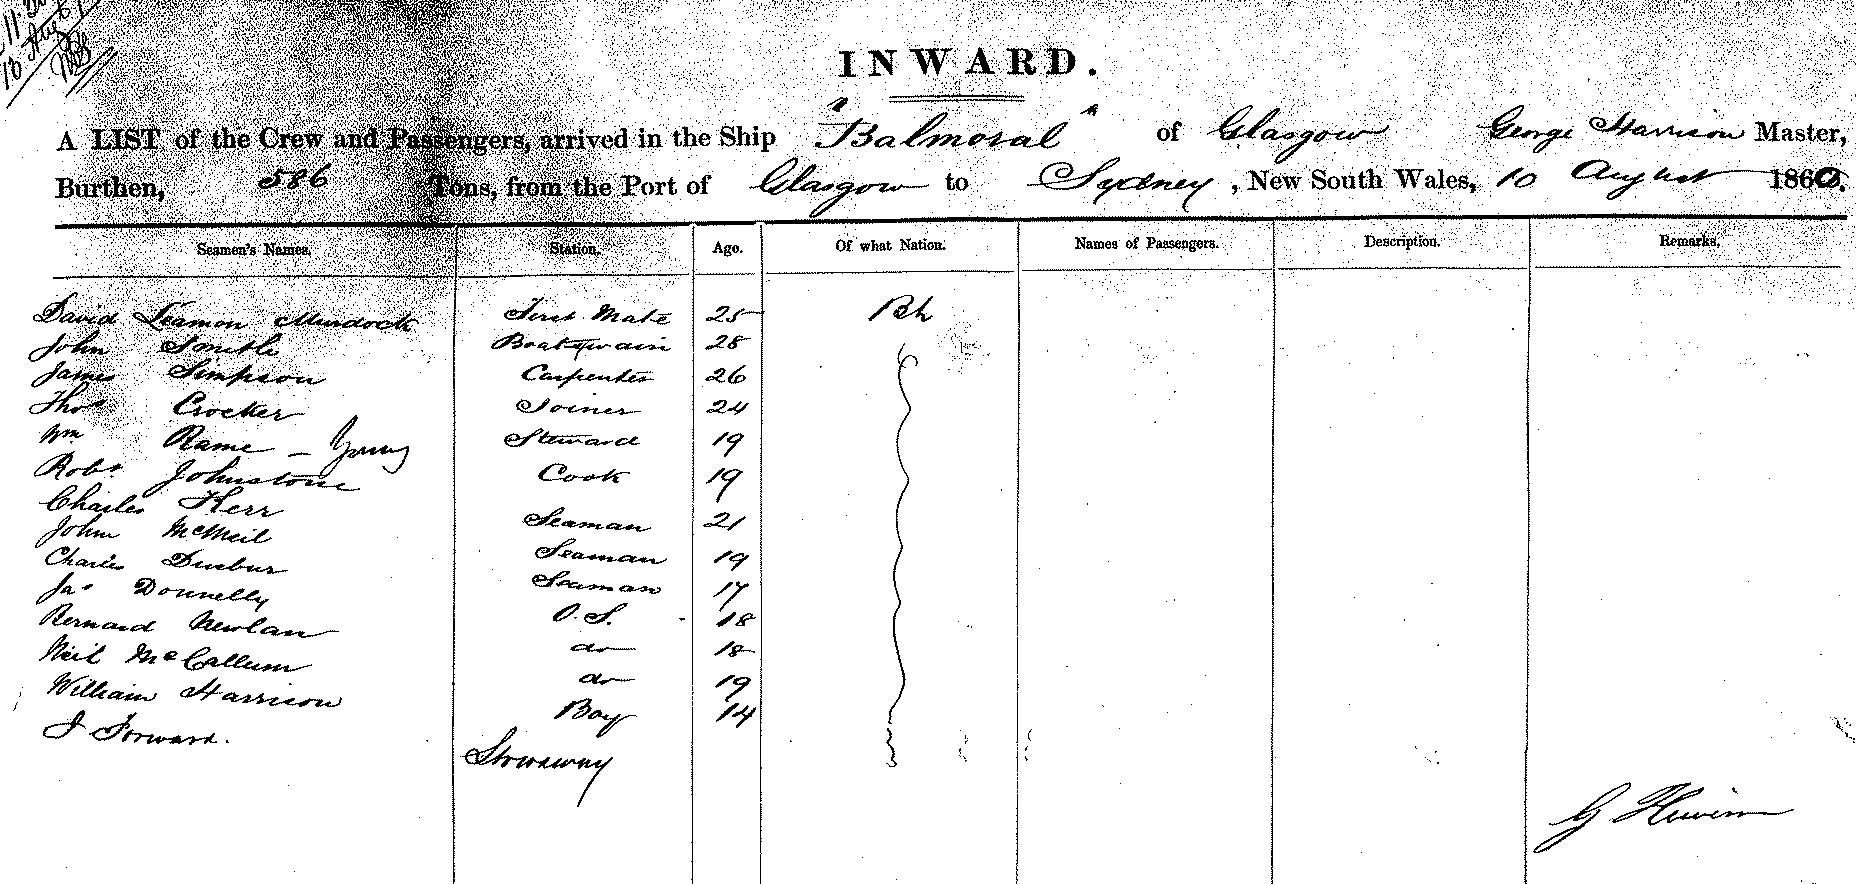 11
13 Aug
INWARD.
A LIST of the Crew and Passengers, arrived in the Ship "Balmoral" of Glasgow George Harrison Master,
Burthen, 586 Tons, from the Port of Glasgow to Sydney, New South Wales, 10 August 1860.
Seamen's Names. Station. Age. Of what Nation. Names of Passengers. Description. Remarks.
David Leamon Murdock First Mate 25 Bh
John Smith Boatswain 28
James Simpson Carpenter 26
Thos Crocker Joiner 24
Wm Rame - Young Steward 19
Robt Johnstone Cook 19
Charles Kerr Seaman 21
John McNeil Seaman 19
Charles Dunbar Seaman 17
Jas Donnelly O.S. 18
Bernard Newlan do 18
Neil McCallum do 19
William Harrison Boy 14
J Forward. Stowaway
G Harrison